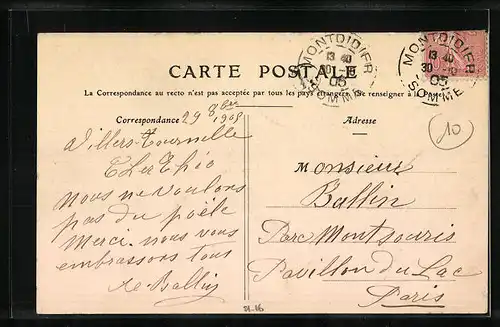 MONTDIDIER
13 40
30 -10
05
SOMME
MONTDIDIER
13 40
30
05
SOMME
CARTE POSTALE
La Correspondance au recto n'est pas acceptée par tous les pays étrangers. Se renseigner à la Poste.
Correspondance
Adresse
29 8bre 1905
Villers-Tournelle
10
Nous ne voulons
pas du poële
Merci. nous vous
embrassons tous
Ballin
Monsieur
Ballin
Parc Montsouris
Pavillon du Lac
Paris